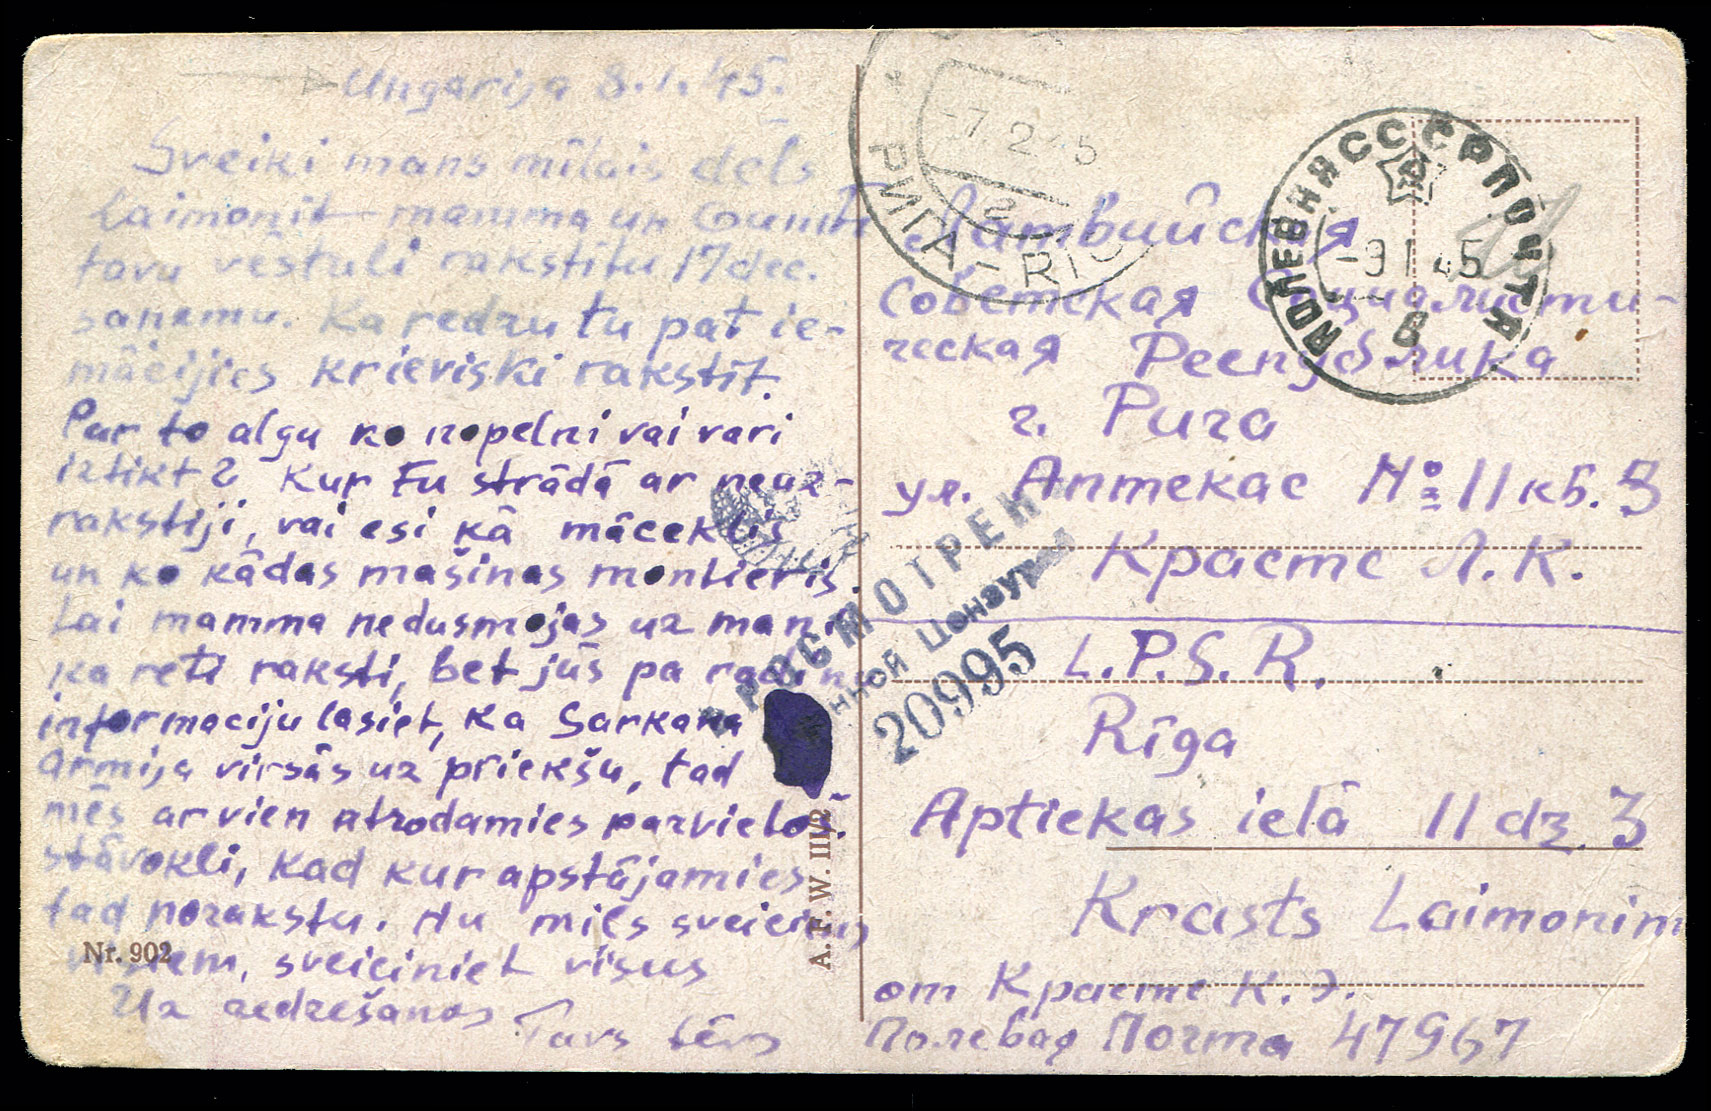 Ungarija 8.1.45.
Sveiki mans mīlais dēls
Laimonīt mamma un Gunti
tavu vēstuli rakstītu 17 dec.
saņēmu. Ka redzu tu pat ie-
mācijies krieviski rakstīt.
Par to algu ko nopelni vai vari
iztikt? Kur Tu strādā ar neuz-
rakstiji, vai esi kā māceklis
un ko kādas mašinas montieris.
Lai mamma nedusmojas uz mani
ka reti raksti, bet jūs pa radio
informaciju lasiet, ka Sarkana
Armija virsās uz priekšu, tad
mēs arvien atrodamies parvieto.
stāvokli, kad kur apstājamies
tad norakstu. Nu mīļš sveiciens
visiem, sveiciniet visus
Uz redzešanos
Tavs tēvs
Nr. 902
A. F. W. III/2
РИГА - RIG
-7.2.45
2
ПОЛЕВАЯ ПОЧТА СССР
-9 1 45
В
Латвийская
Советская Социалисти-
ческая Республика
г. Рига
ул. Аптекас № 11 кв. 3
Красте Л. К.
ПРОСМОТРЕНО
Военной Цензурой
20995
L.P.S.R.
Rīga
Aptiekas ielā 11 dz. 3
Krasts Laimonim
от Красте К. Э.
Полевая Почта 47967